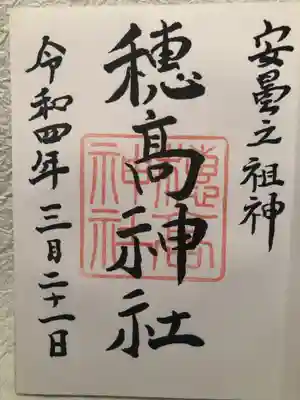 安曇之祖神
穂髙神社
穂高神社
令和四年三月二十一日